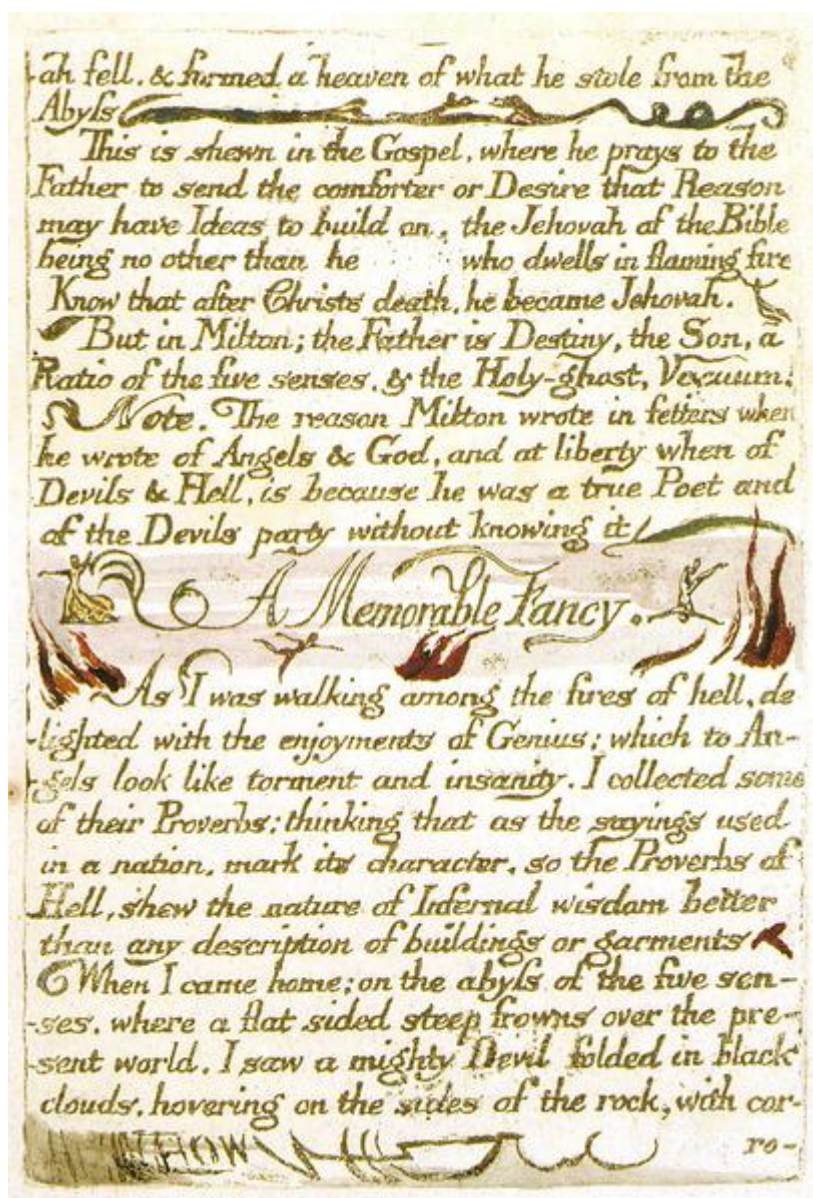 ah fell. & formed a heaven of what he stole from the
Abyſs
This is shewn in the Gospel, where he prays to the
Father to send the comforter or Desire that Reason
may have Ideas to build on, the Jehovah of the Bible
being no other than he who dwells in flaming fire
Know that after Christs death, he became Jehovah.
But in Milton; the Father is Destiny, the Son, a
Ratio of the five senses. & the Holy-ghost, Vacuum!
Note. The reason Milton wrote in fetters when
he wrote of Angels & God, and at liberty when of
Devils & Hell, is because he was a true Poet and
of the Devils party without knowing it
A Memorable Fancy.
As I was walking among the fires of hell, de
-lighted with the enjoyments of Genius; which to An-
-gels look like torment and insanity. I collected some
of their Proverbs: thinking that as the sayings used
in a nation, mark its character, so the Proverbs of
Hell, shew the nature of Infernal wisdom better
than any description of buildings or garments
When I came home; on the abyſs of the five sen-
-ses, where a flat sided steep frowns over the pre-
-sent world. I saw a mighty Devil folded in black
clouds, hovering on the sides of the rock, with cor-
ro-